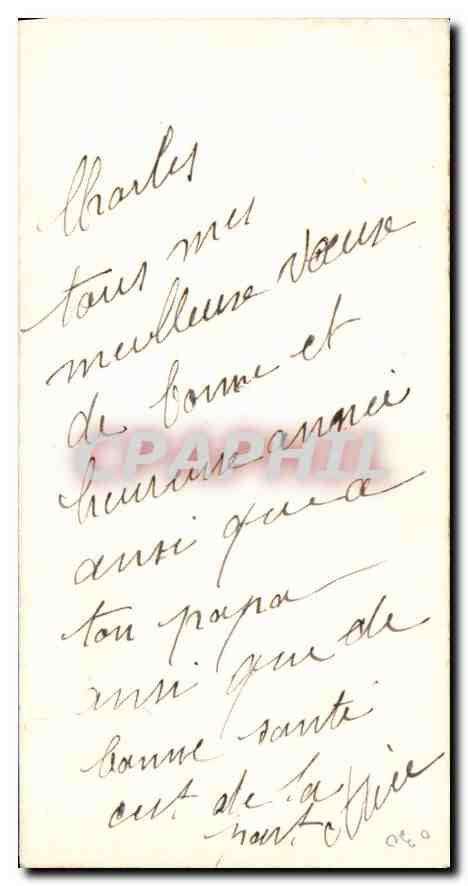 Charles
tous mes
meilleuse voeuse
de bonne et
heureuse année
ansi que a
ton papa
ansi que de
bonne santé
cest de la
part
CPAPHIL